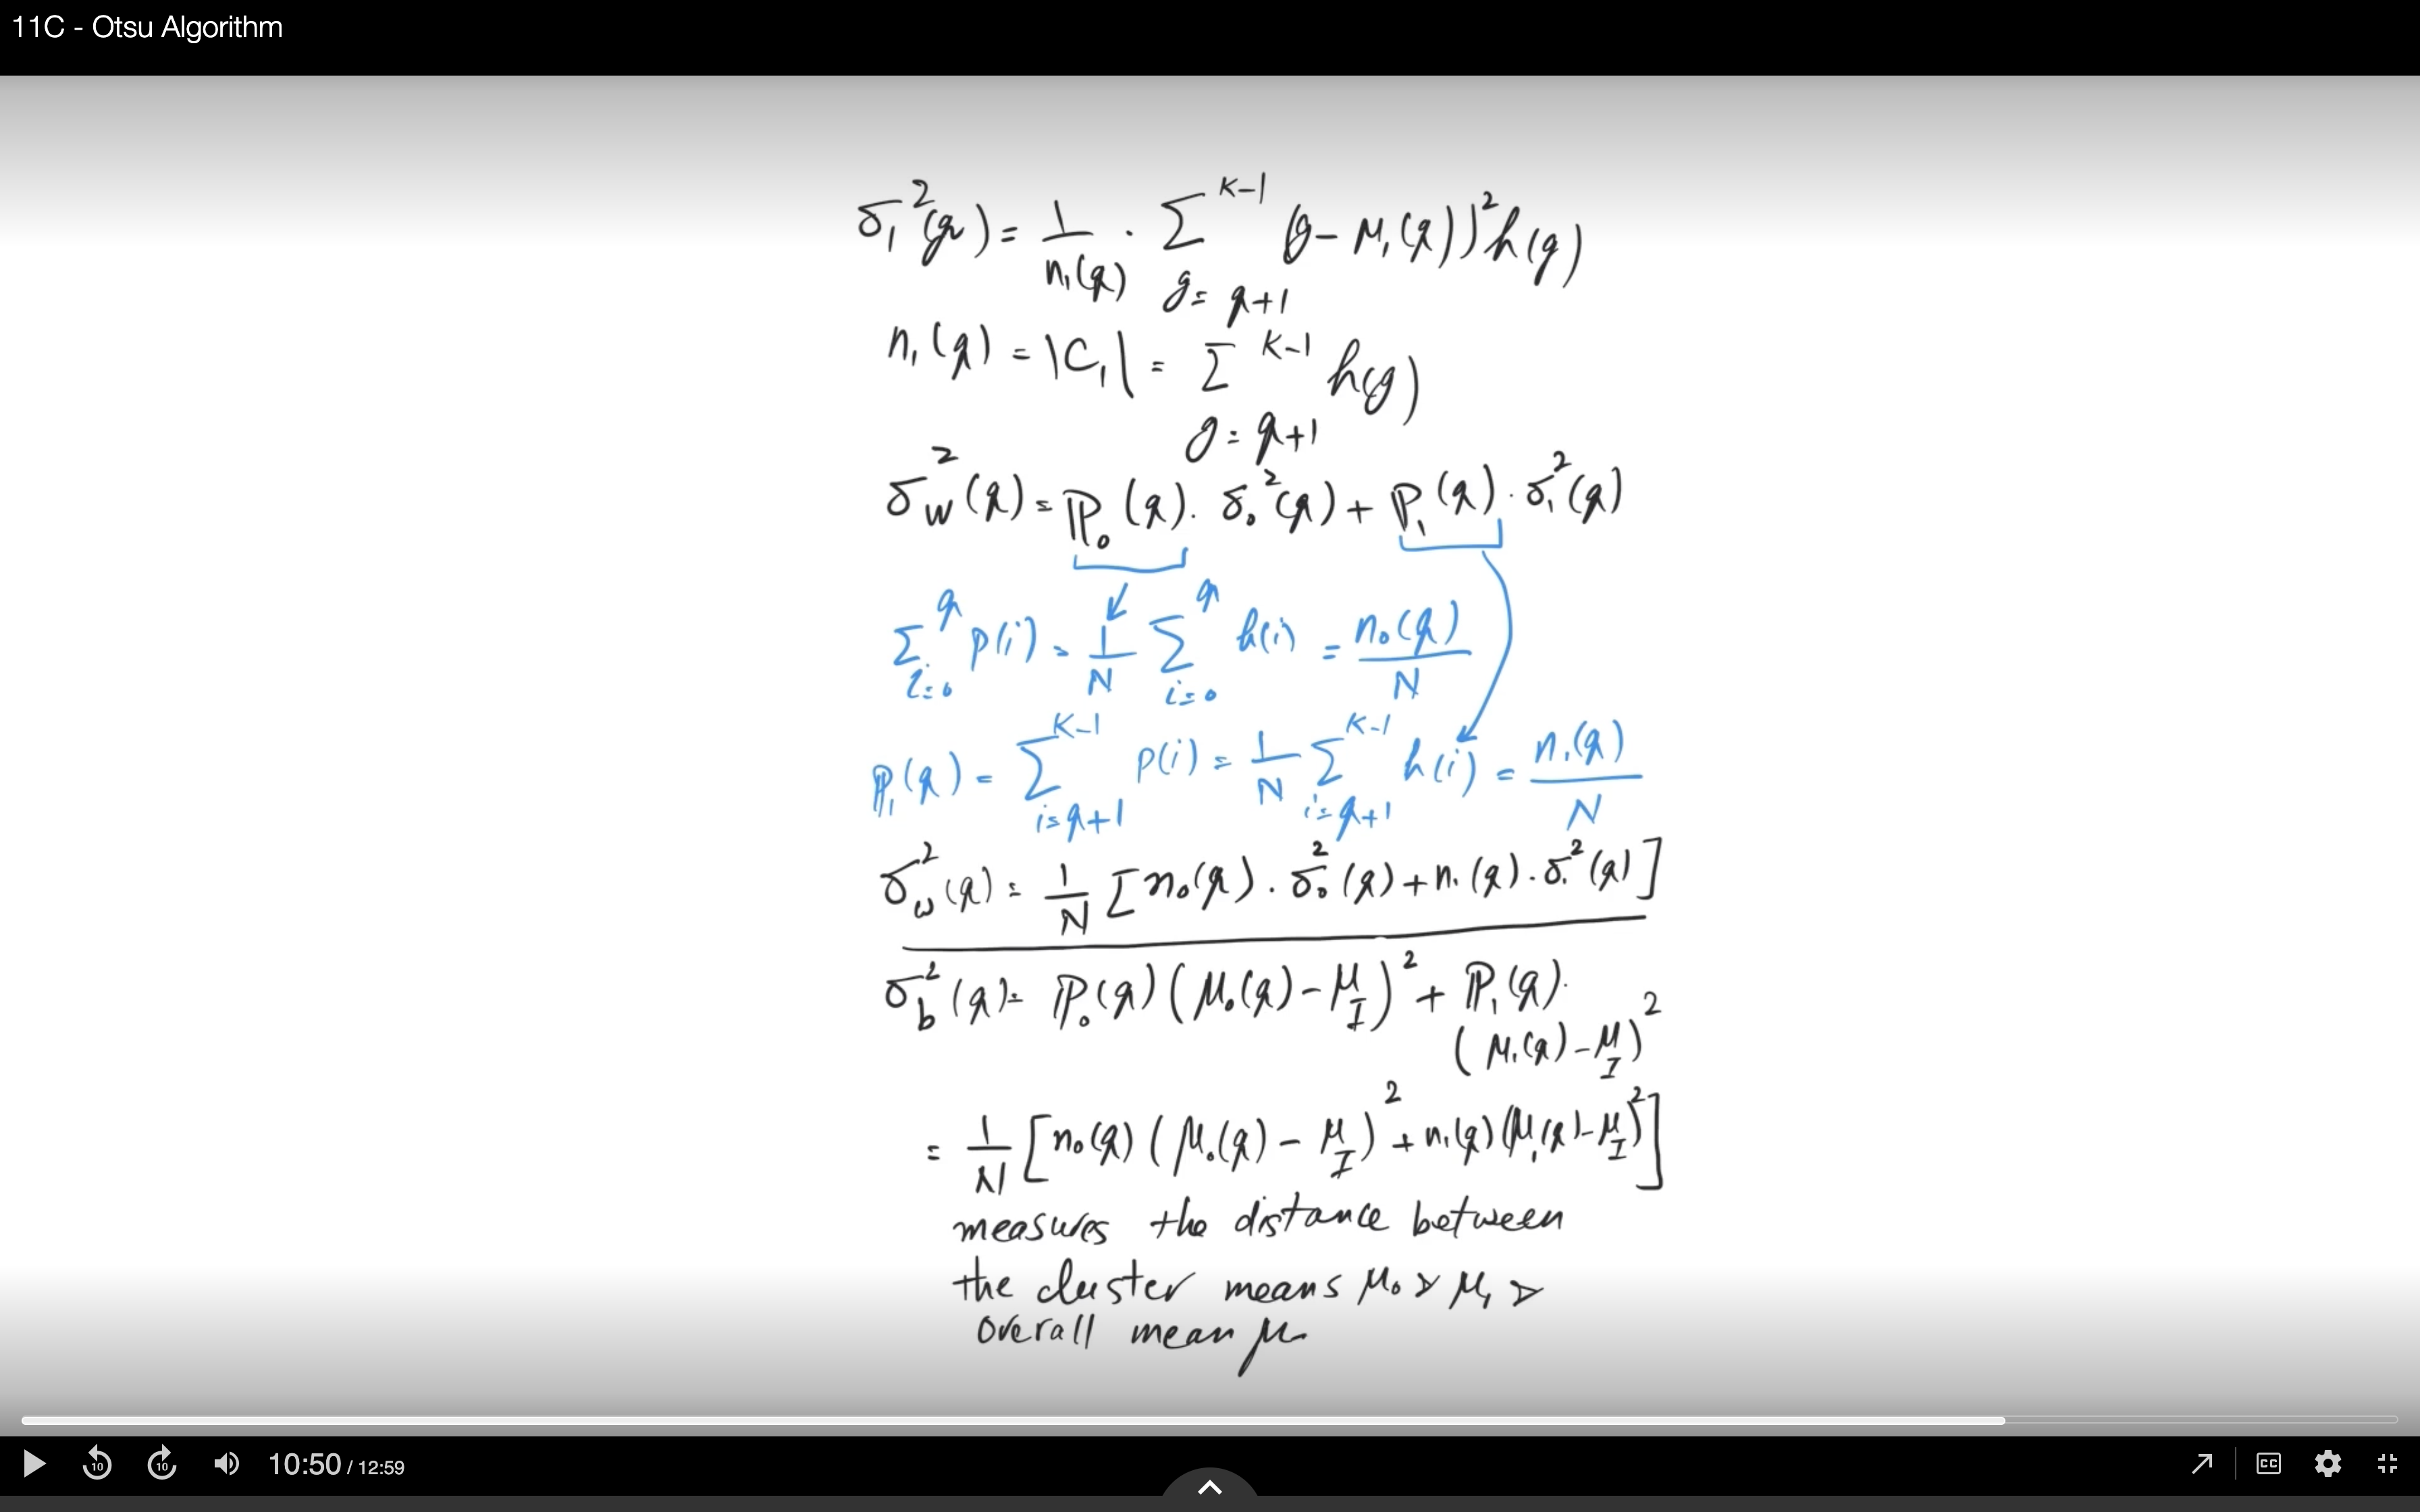 11C - Otsu Algorithm
σ₁²(q) = 1/n₁(q) · Σ_{g=q+1}^{K-1} (g - μ₁(q))² h(g)
n₁(q) = |C₁| = Σ_{g=q+1}^{K-1} h(g)
σ_w²(q) = ℙ₀(q) · σ₀²(q) + ℙ₁(q) · σ₁²(q)
Σ_{i=0}^{q} p(i) = 1/N Σ_{i=0}^{q} h(i) = n₀(q)/N
ℙ₁(q) = Σ_{i=q+1}^{K-1} p(i) = 1/N Σ_{i=q+1}^{K-1} h(i) = n₁(q)/N
σ_w²(q) = 1/N [n₀(q) · σ₀²(q) + n₁(q) · σ₁²(q)]
σ_b²(q) = ℙ₀(q) (μ₀(q) - μ_I)² + ℙ₁(q) ·
(μ₁(q) - μ_I)²
= 1/N [n₀(q) (μ₀(q) - μ_I)² + n₁(q) (μ₁(q) - μ_I)²]
measures the distance between
the cluster means μ₀ & μ₁ &
overall mean μ
10 10 10:50 / 12:59 CC